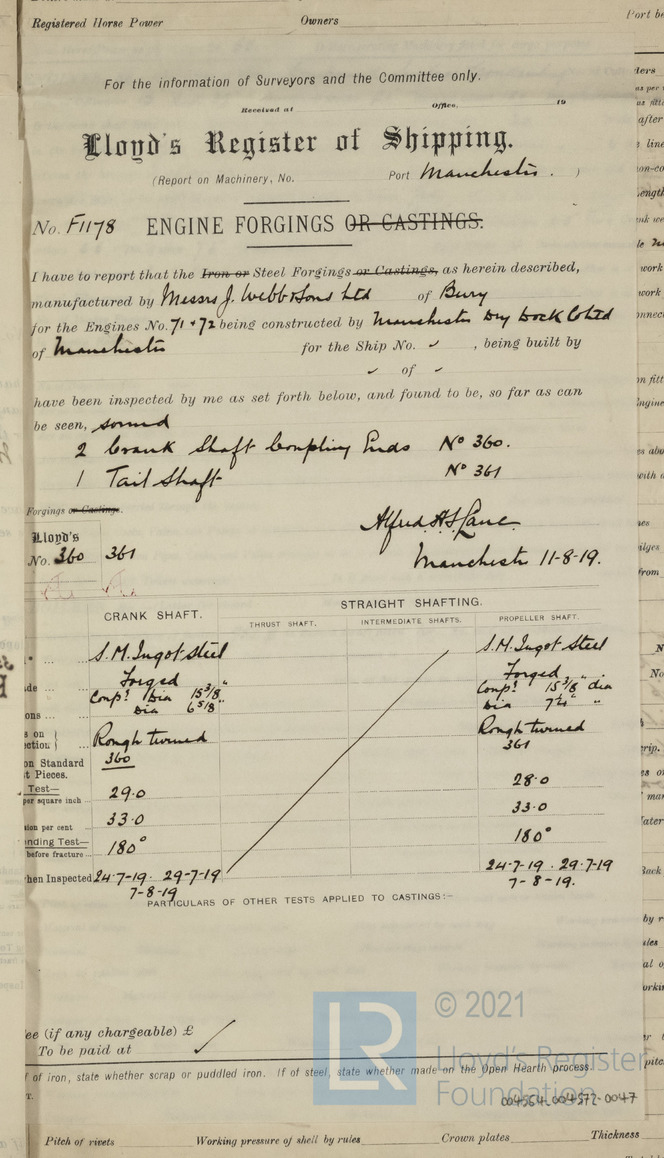 Registered Horse Power Owners
For the information of Surveyors and the Committee only.
Received at Office, 19
Lloyd's Register of Shipping.
(Report on Machinery, No. Port Manchester. )
No. F1178 ENGINE FORGINGS OR CASTINGS.
I have to report that the Iron or Steel Forgings or Castings, as herein described,
manufactured by Messrs J. Webb & Sons Ltd of Bury
for the Engines No. 71 & 72 being constructed by Manchester Dry Dock Co Ltd
of Manchester for the Ship No. ✓ , being built by
✓ of ✓
have been inspected by me as set forth below, and found to be, so far as can
be seen, sound
2 Crank Shaft Coupling Ends No 360.
1 Tail Shaft No 361
Forgings or Castings.
Alfred A.S. Lane
Lloyd's
No. 360 361
Manchester 11-8-19.
CRANK SHAFT. STRAIGHT SHAFTING.
THRUST SHAFT. INTERMEDIATE SHAFTS. PROPELLER SHAFT.
S.M. Ingot Steel S.M. Ingot Steel
Forged Forged
Coupg Dia 15 3/8" Coupg 15 3/8" dia
Dia 6 5/8" Dia
Rough turned Rough turned
360 361
on Standard
t Pieces.
Test—
per square inch 29.0 28.0
sion per cent 33.0 33.0
ending Test—
before fracture 180° 180°
hen Inspected 24-7-19. 29-7-19 24-7-19. 29-7-19
7-8-19 7-8-19.
PARTICULARS OF OTHER TESTS APPLIED TO CASTINGS:—
ee (if any chargeable) £
To be paid at
f of iron, state whether scrap or puddled iron. If of steel, state whether made on the Open Hearth process.
LR © 2021
Lloyd's Register
Foundation
004564-004572-0047
Pitch of rivets Working pressure of shell by rules Crown plates Thickness